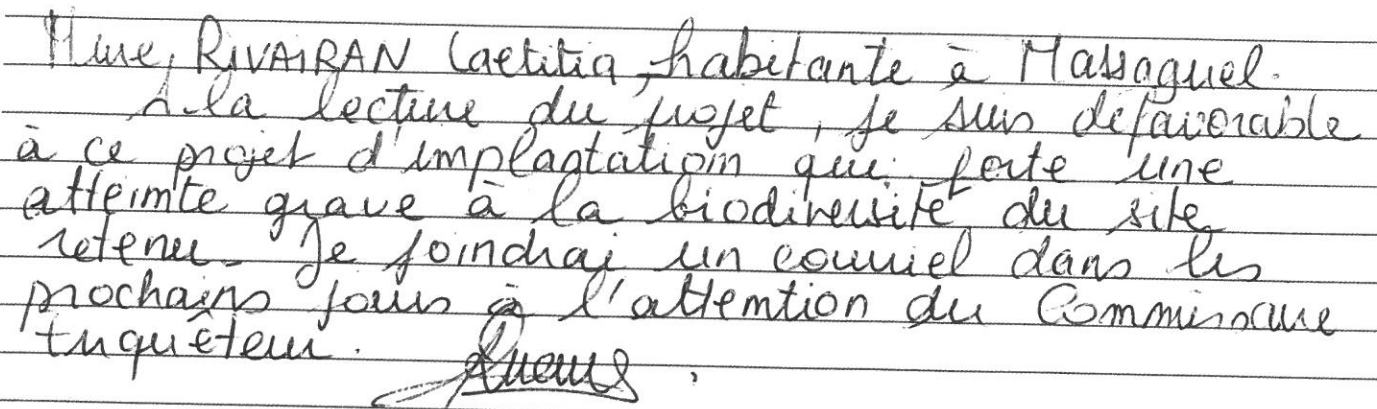 Mme, RIVAIRAN Laetitia, habitante à Massaguel.
A la lecture du projet, je suis défavorable
à ce projet d'implantation qui porte une
atteinte grave à la biodiversité du site
retenu. Je joindrai un courriel dans les
prochains jours à l'attention du Commissaire
Enquêteur.